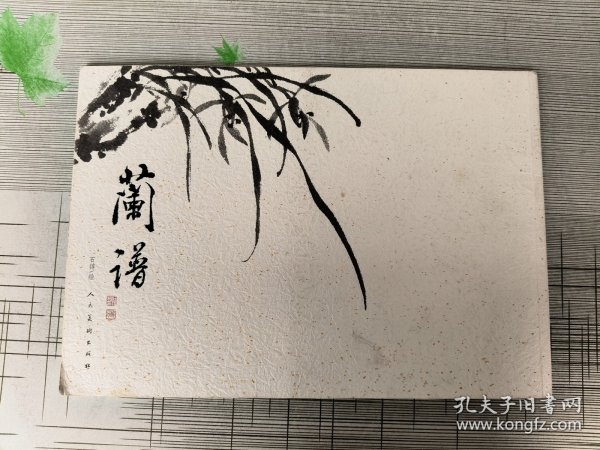 蘭譜
人民美術出版社
孔夫子旧書网
www.kongfz.com